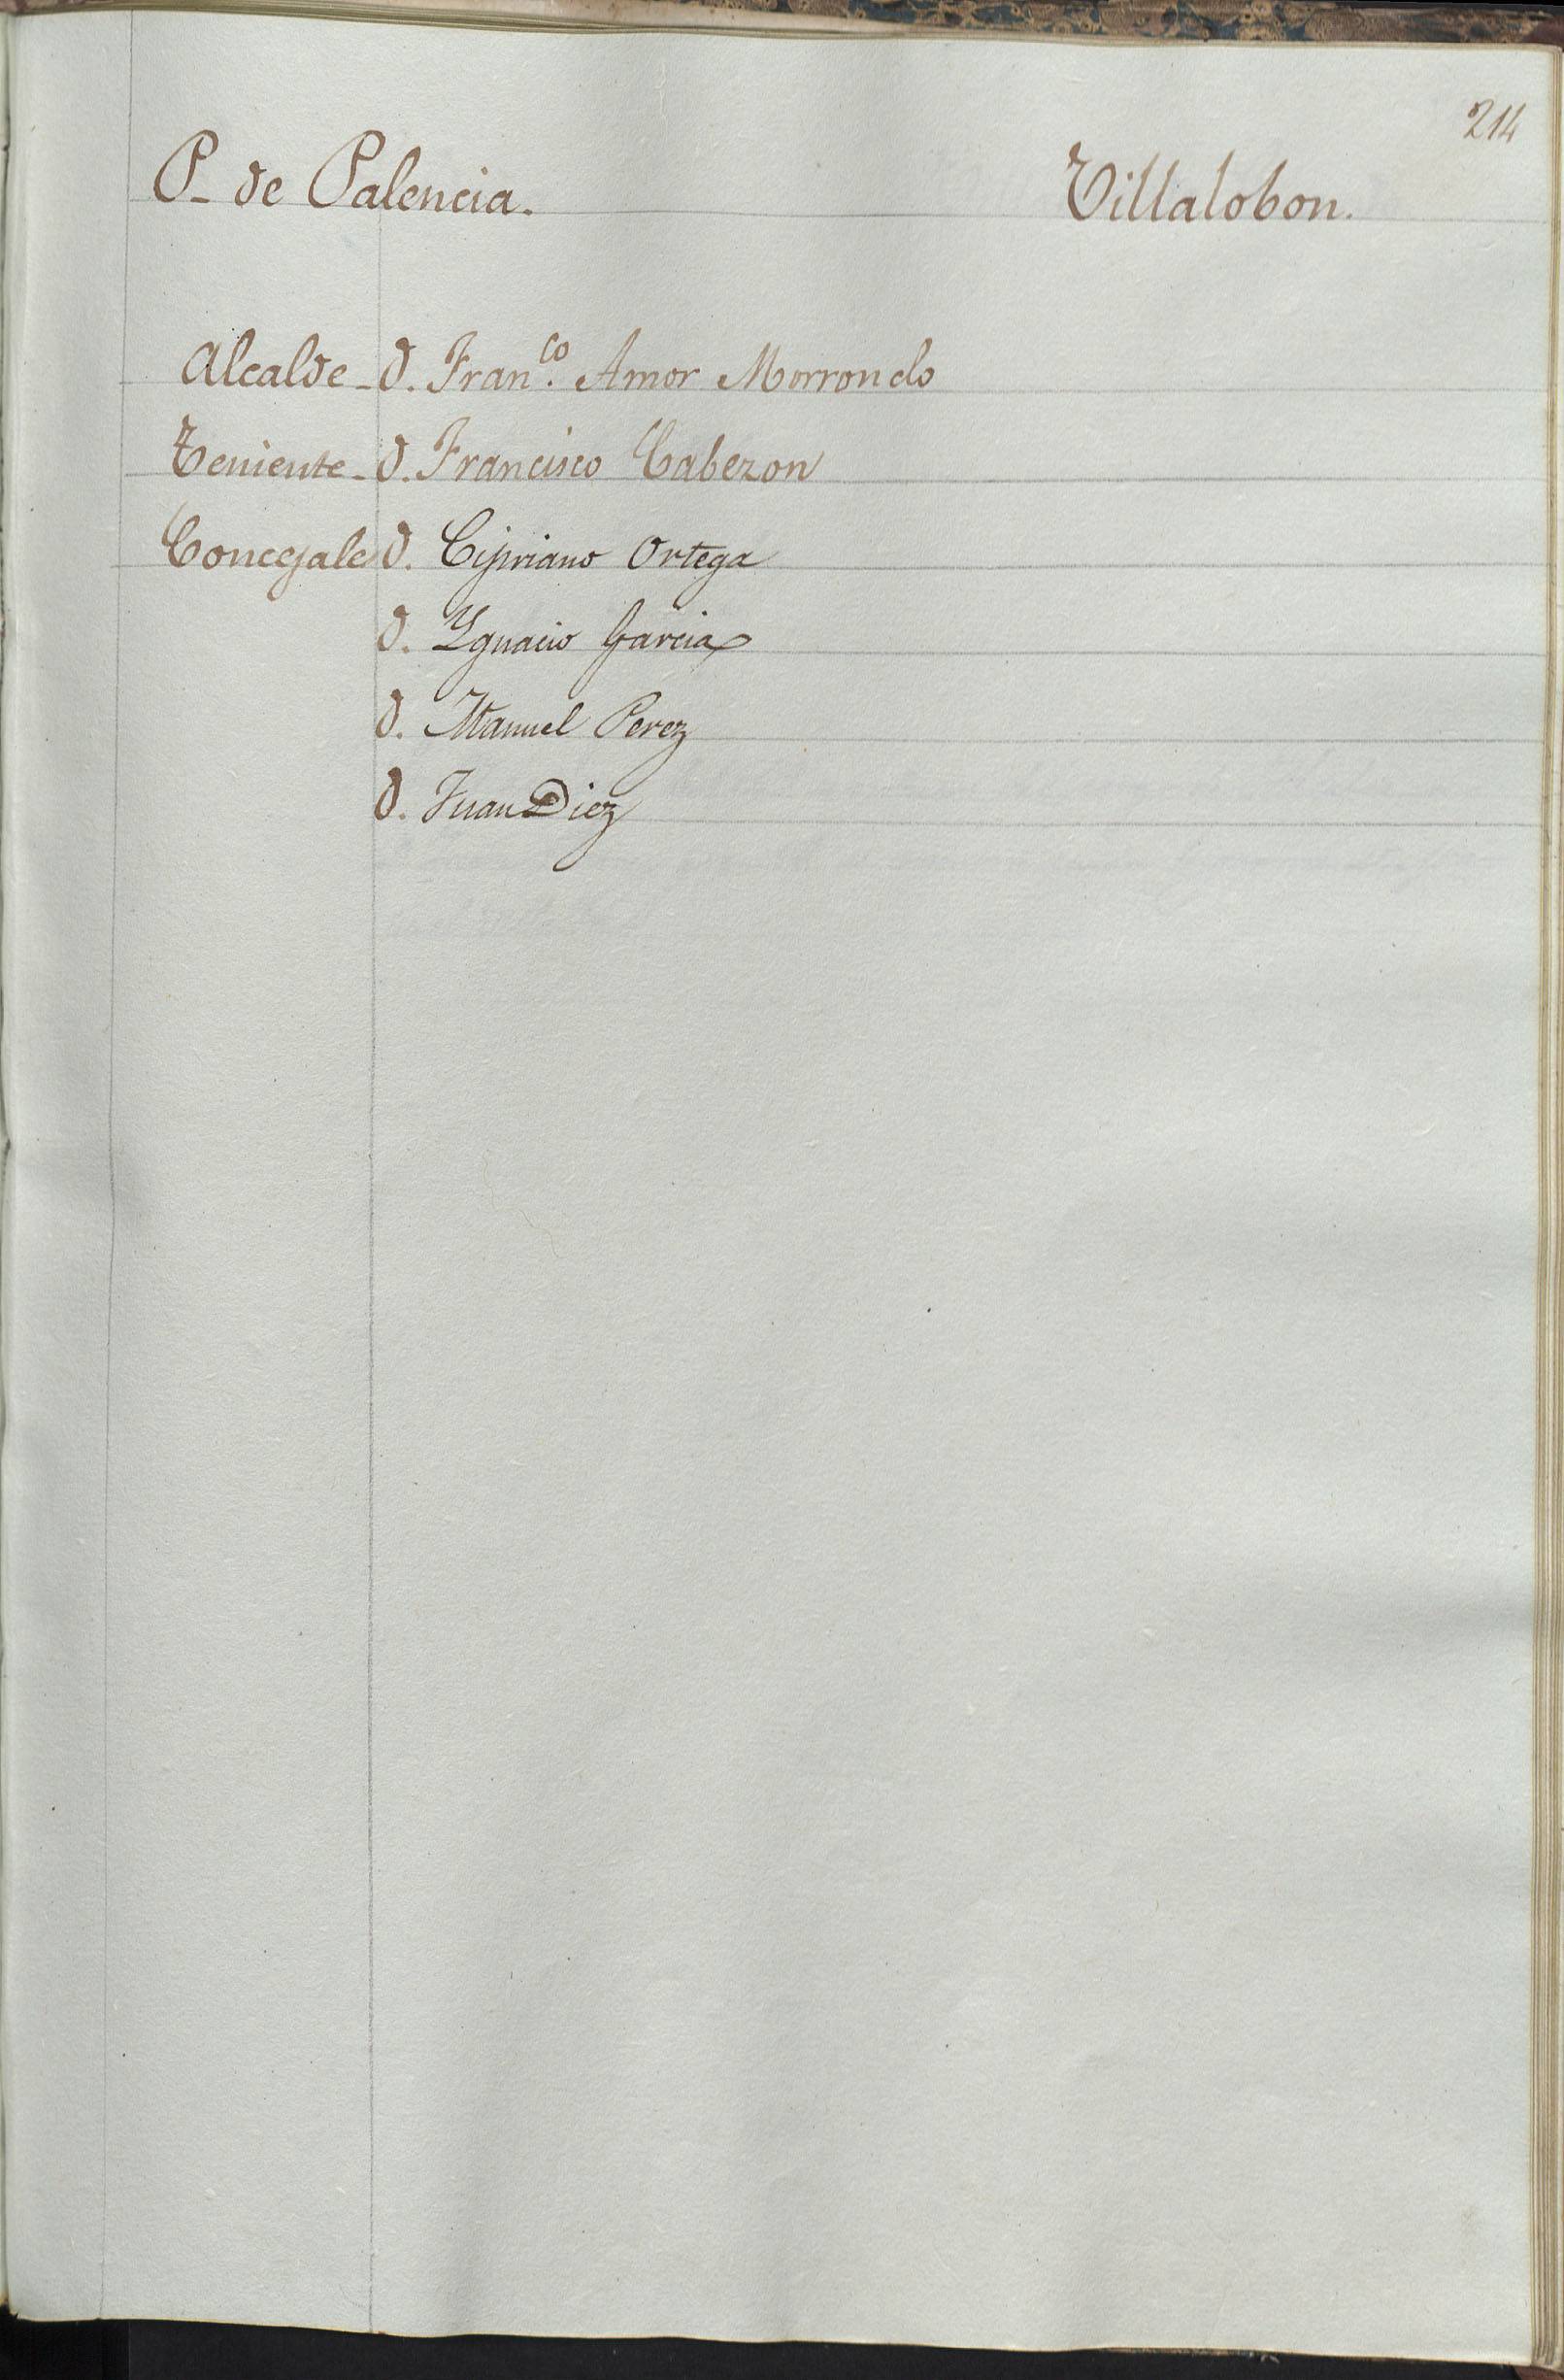 214
P- de Palencia. Villalobon.
Alcalde - D. Fran.co Amor Morrondo
Teniente - D. Francisco Cabezon
Concejales D. Cipriano Ortega
D. Ygnacio Garcia
D. Manuel Perez
D. Juan Diez